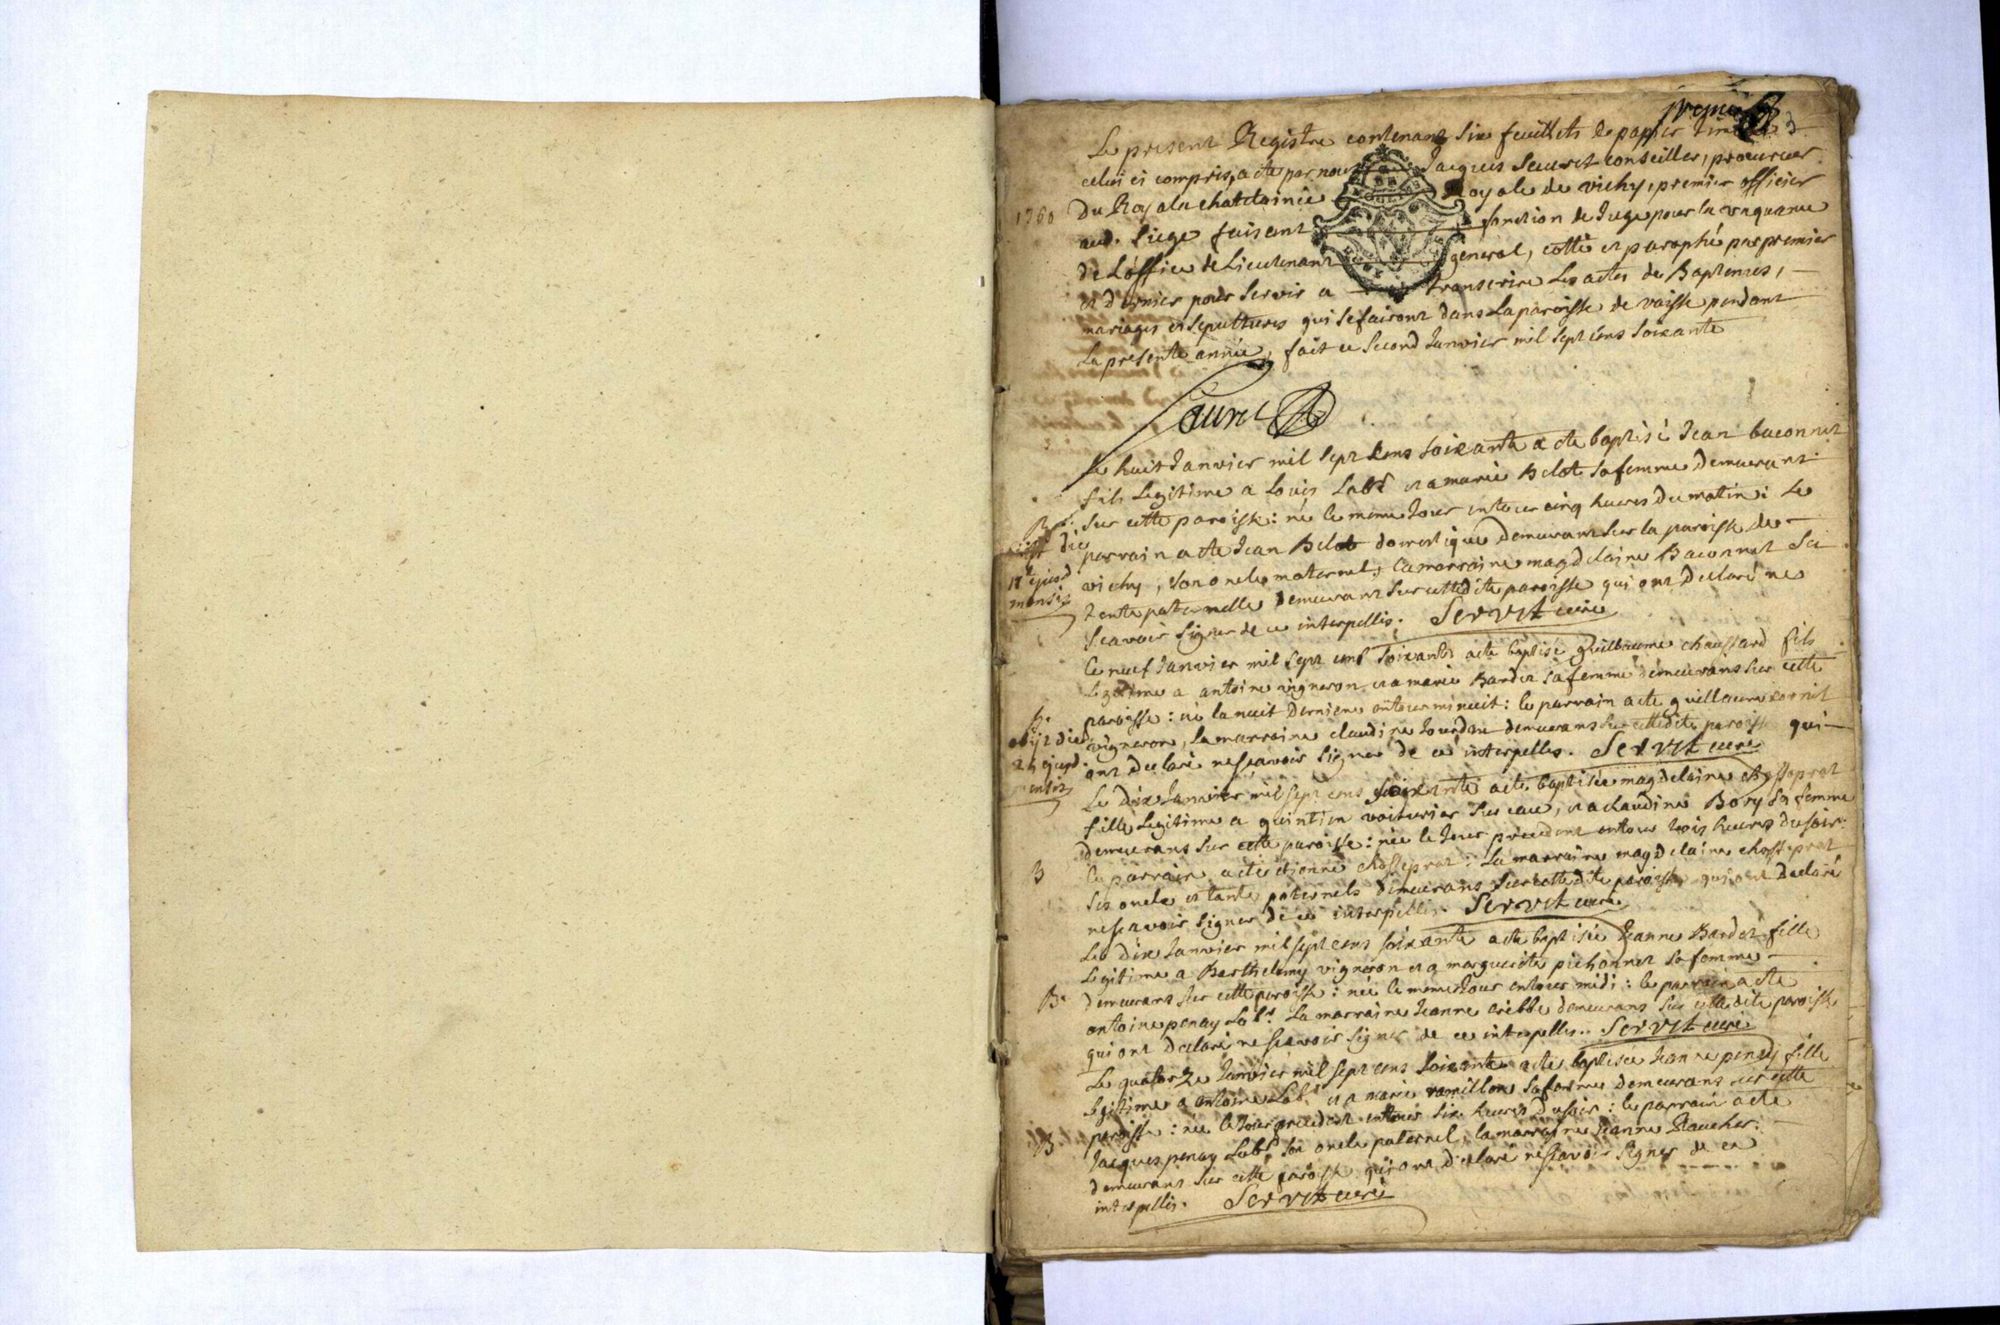 premier
3
Le present Registre contenant six feuillets de papier timbré
celui ci compris, a été par nous Jacques Sauret conseiller, procureur
1760
Du Roy a la chatelainie Royale de vichy, premier officier
aud. Siege faisant fonction de Juge pour la vaquance
de L'office de Lieutenant general, cotté et paraphé par premier
et dernier pour servir a transcrire Les actes de Baptemes,
mariages et sepultures qui se fairont dans La paroisse de vaisse pendant
La presente année, fait ce second Janvier mil sept cens soixante
Sauret
Le huit Janvier mil sept cens soixante a été baptisé Jean baconnet
fils Legitime a Louis Labr et a marie Belot sa femme demeurant
sur cette paroisse: né le meme Jour entour cinq heures du matin: Le
parrain a été Jean Belot domestique demeurant sur la paroisse de
vichy, son oncle maternel, La marraine magdelaine Baconnet sa
tente paternelle demeurant sur cettedite paroisse qui ont declaré ne
sçavoir signer de ce interpellis. Servit curé
B.
obiit die
ejusd
mensis
Le neuf Janvier mil sept cens soixante a été baptisé guillaume chaussard fils
Legitime a antoine vigneron et a marie Bardet sa femme demeurans sur cette
paroisse: né la nuit derniere entour minuit: le parrain a été guillaume cornil
vigneron, La marraine claudine Jourdin demeurans sur cettedite paroisse qui
ont declaré ne sçavoir signer de ce interpelles. Servit curé
b.
obiit die
24 ejusd.
mensis
Le dix Janvier mil sept cens soixante a été baptisée magdelaine chosseprat
fille Legitime a quintien voiturier sur eau, et a claudine Bory sa femme
demeurans sur cette paroisse: née le Jour precedent entour trois heures du soir:
Le parrain a été etienne chosseprat: La marraine magdelaine chosseprat
ses oncle et tante paternels demeurans sur cettedite paroisse qui ont declaré
ne scavoir signer de ce interpellis. Servit curé
B
Le dix Janvier mil sept cens soixante a été baptisée Jeanne Bardet fille
Legitime a Barthelemy vigneron et a marguerite pichonnet sa femme
demeurans sur cette paroisse: née le meme Jour entour midi: le parrain a été
antoine penay Labr. La marraine Jeanne cribbe demeurans sur cettedite paroisse
qui ont declaré ne scavoir signer de ce interpellis.. Servit curé
B.
Le quatorze Janvier mil sept cens soixante a été baptisée Jeanne penay fille
Legitime a antoine Labr. et a marie ramillon sa femme demeurans sur cette
paroisse: née le Jour precedent entour six heures du soir: le parrain a été
Jacques penay Labr. son oncle paternel, la marraine Jeanne Raucher:
demeurans sur cette paroisse qui ont declaré ne scavoir signer de ce
interpellis. Servit curé
B